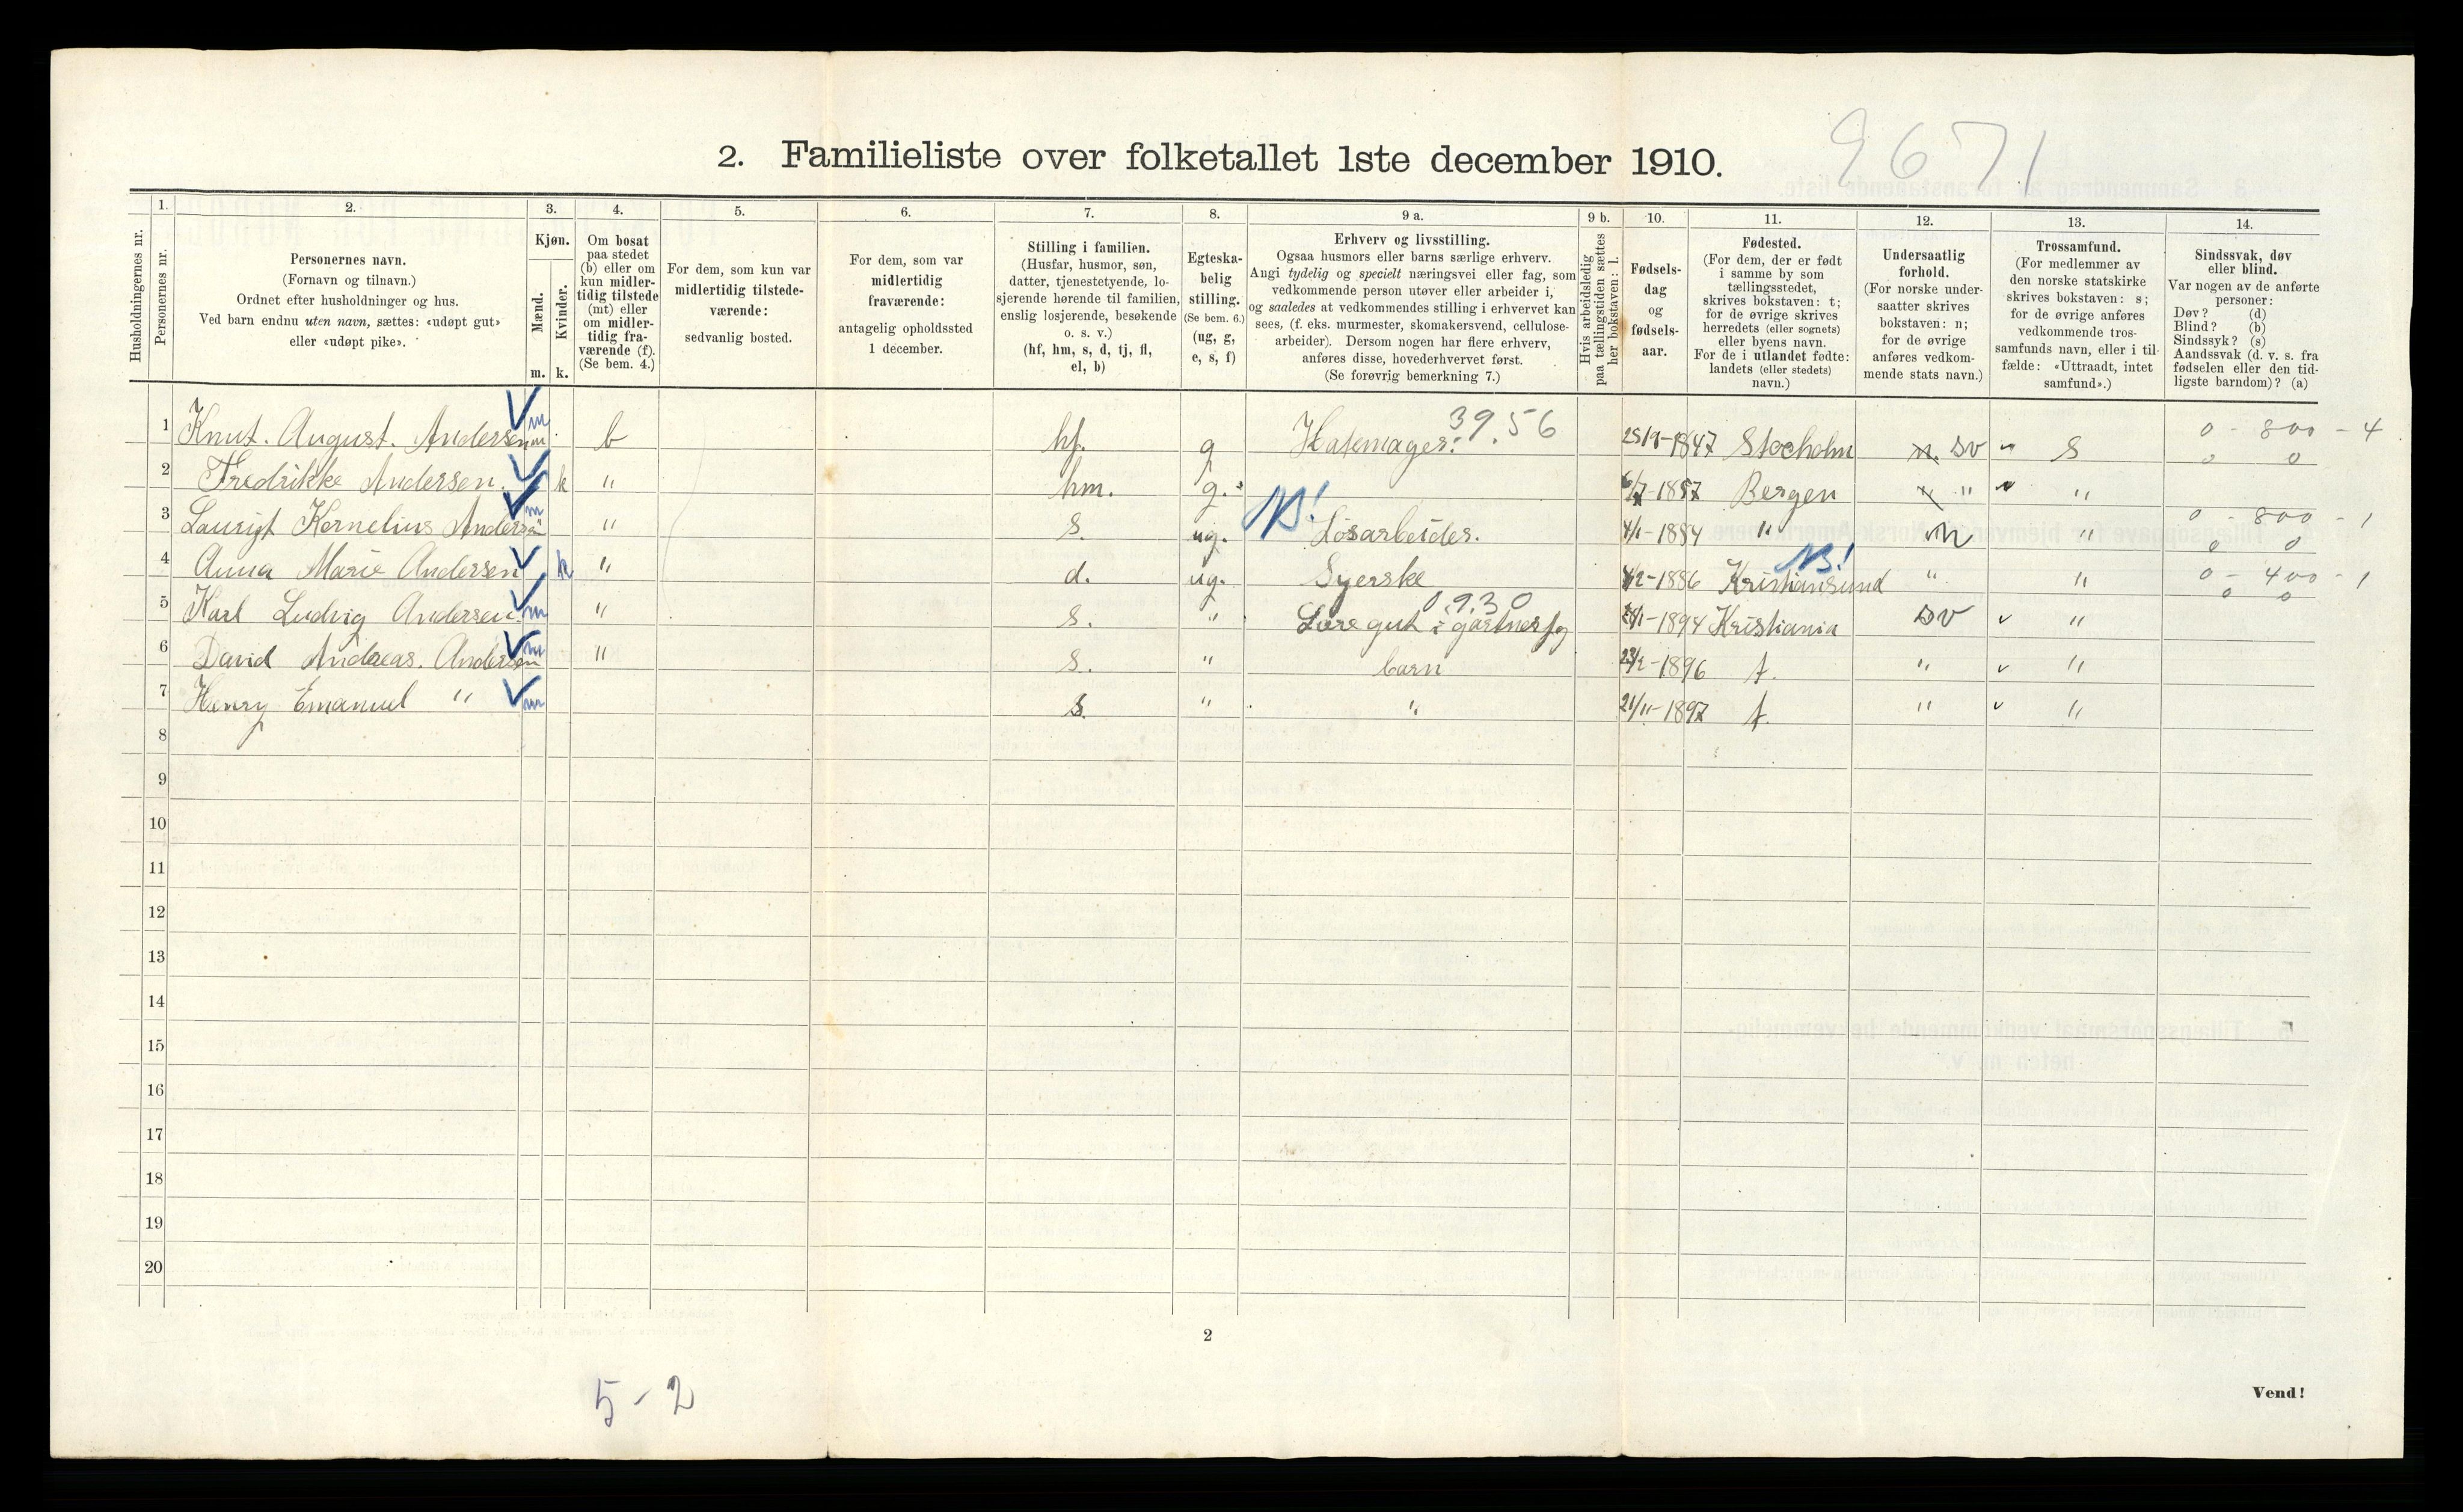 9671
2. Familieliste over folketallet 1ste december 1910.
1. 2. 3. 4. 5. 6. 7. 8. 9 a. 9 b. 10. 11. 12. 13. 14.
Husholdningernes nr.
Personernes nr.
Personernes navn.
(Fornavn og tilnavn.)
Ordnet efter husholdninger og hus.
Ved barn endnu uten navn, sættes: «udøpt gut»
eller «udøpt pike».
Kjøn.
Mænd.
Kvinder.
m. k.
Om bosat
paa stedet
(b) eller om
kun midler-
tidig tilstede
(mt) eller
om midler-
tidig fra-
værende (f).
(Se bem. 4.)
For dem, som kun var
midlertidig tilstede-
værende:
sedvanlig bosted.
For dem, som var
midlertidig
fraværende:
antagelig opholdssted
1 december.
Stilling i familien.
(Husfar, husmor, søn,
datter, tjenestetyende, lo-
sjerende hørende til familien,
enslig losjerende, besøkende
o. s. v.)
(hf, hm, s, d, tj, fl,
el, b)
Egteska-
belig
stilling.
(Se bem. 6.)
(ug, g,
e, s, f)
Erhverv og livsstilling.
Ogsaa husmors eller barns særlige erhverv.
Angi tydelig og specielt næringsvei eller fag, som
vedkommende person utøver eller arbeider i,
og saaledes at vedkommendes stilling i erhvervet kan
sees, (f. eks. murmester, skomakersvend, cellulose-
arbeider). Dersom nogen har flere erhverv,
anføres disse, hovederhvervet først.
(Se forøvrig bemerkning 7.)
Hvis arbeidsledig
paa tællingstiden sættes
her bokstaven: l.
Fødsels-
dag
og
fødsels-
aar.
Fødested.
(For dem, der er født
i samme by som
tællingsstedet,
skrives bokstaven: t;
for de øvrige skrives
herredets (eller sognets)
eller byens navn.
For de i utlandet fødte:
landets (eller stedets)
navn.)
Undersaatlig
forhold.
(For norske under-
saatter skrives
bokstaven: n;
for de øvrige
anføres vedkom-
mende stats navn.)
Trossamfund.
(For medlemmer av
den norske statskirke
skrives bokstaven: s;
for de øvrige anføres
vedkommende tros-
samfunds navn, eller i til-
fælde: «Uttraadt, intet
samfund».)
Sindssvak, døv
eller blind.
Var nogen av de anførte
personer:
Døv? (d)
Blind? (b)
Sindssyk? (s)
Aandssvak (d. v. s. fra
fødselen eller den tid-
ligste barndom)? (a)
39.56 0 - 800 - 4
1 Knut. August. Andersen m b hf. g 1847 Stocholm n. sv s 0 0
2 Fredrikke Andersen. k " hm. g. 6/7-1857 Bergen " "
NB! 0 - 800 - 1
3 Kornelius Andersen m " s. ug. Løsarbeider. 4/1-1884 " n " 0 0
NB! 0 - 400 - 1
4 Anna Marie Andersen k " d. ug. Syerske 1886 Kristiansund " " 0 0
0.930
5 Karl Ludvig Andersen. m " s. " 1894 Kristiania sv "
6 David Andreas. Andersen m " s. " barn 23/2-1896 t. " "
7 Henry Emanuel " m s. " " 21/11-1897 t. " "
8
9
10
11
12
13
14
15
16
17
18
19
20
2
5-2
Vend!